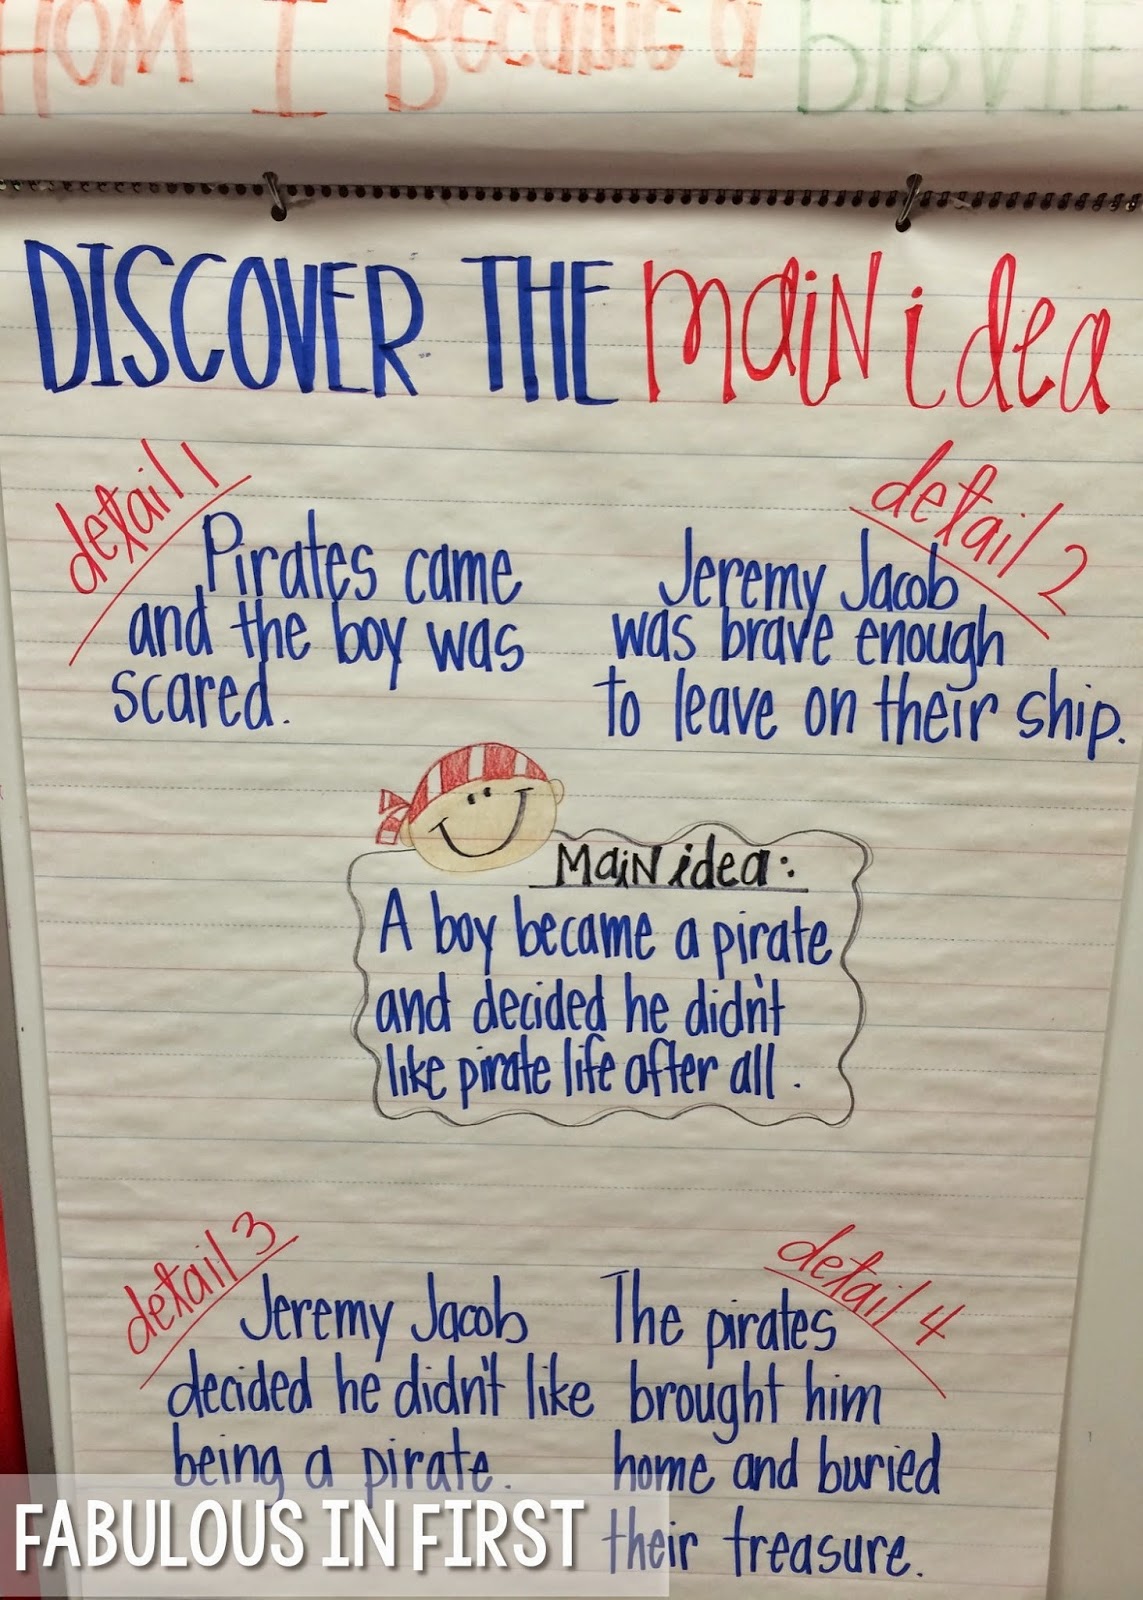 How I Became a PIRATE
DISCOVER THE main idea
detail 1
Pirates came
and the boy was
scared.
detail 2
Jeremy Jacob
was brave enough
to leave on their ship.
Main idea:
A boy became a pirate
and decided he didn't
like pirate life after all.
detail 3
Jeremy Jacob
decided he didn't like
being a pirate.
detail 4
The pirates
brought him
home and buried
their treasure.
FABULOUS IN FIRST